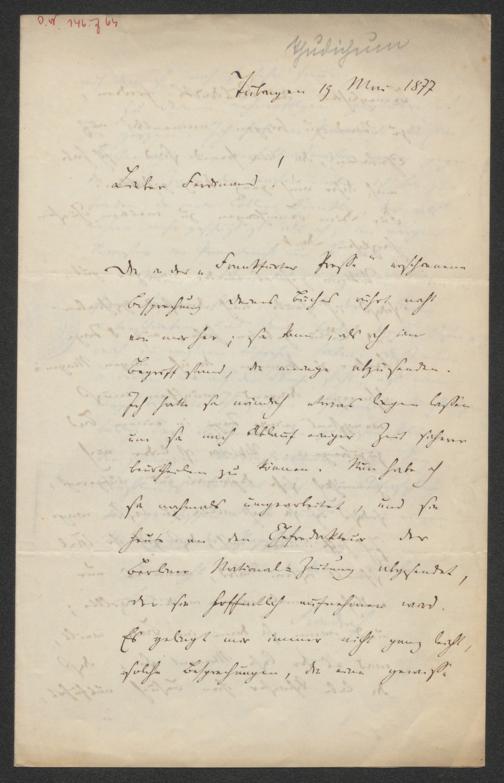 D.N. 146. f 64
Thudichum
Tübingen 19 Mai 1877
Lieber Ferdinand!
Die in der „Frankfurter Presse" erschienene
Besprechung deines Buches rührt nicht
von mir her; sie kam, als ich im
Begriff stand, die meinige abzusenden.
Ich hatte sie nämlich etwas liegen lassen
um sie nach Ablauf einiger Zeit sicherer
beurtheilen zu können. Nun habe ich
sie nochmals umgearbeitet, und sie
heute an den Chefredakteur der
Berliner National-Zeitung abgesendet,
der sie hoffentlich aufnehmen wird.
Es gelingt mir immer nicht ganz leicht,
solche Besprechungen, die eine gewisse